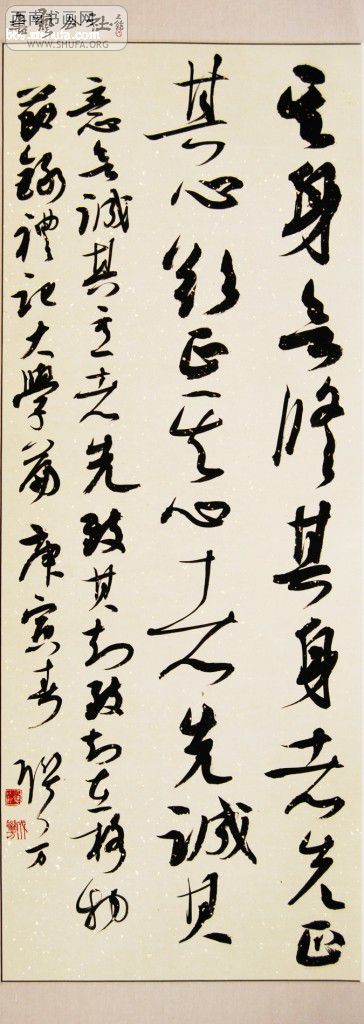 西南书画网
WWW.SHUFA.ORG
其身欲修其身者先正
其心欲正其心者先誠其
意欲誠其意者先致其知致知在格物
節錄禮記大學篇 庚寅春 万